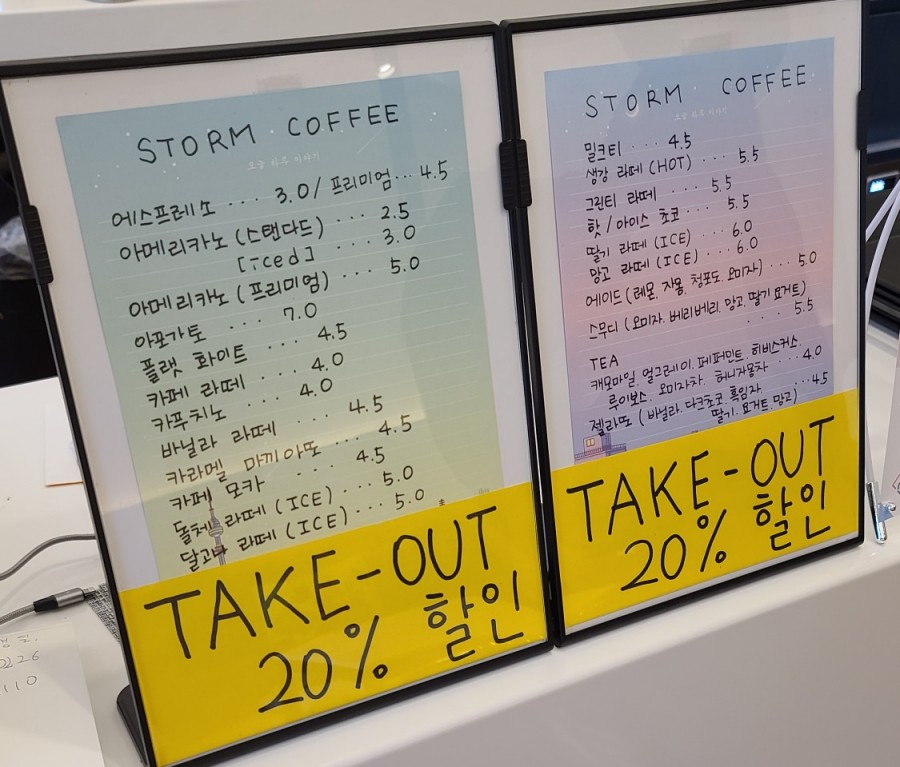 STORM COFFEE
오늘 하루 이야기
에스프레소 ... 3.0 / 프리미엄 ... 4.5
아메리카노 (스탠다드) ... 2.5
[iced] ... 3.0
아메리카노 (프리미엄) ... 5.0
아포가토 ... 7.0
플랫 화이트 ... 4.5
카페 라떼 ... 4.0
카푸치노 ... 4.0
바닐라 라떼 ... 4.5
카라멜 마끼아또 ... 4.5
카페 모카 .... 4.5
돌체 라떼 (ICE) ... 5.0
달고나 라떼 (ICE) ... 5.0
TAKE-OUT
20% 할인
STORM COFFEE
오늘 하루 이야기
밀크티 .... 4.5
생강 라떼 (HOT) ... 5.5
그린티 라떼 ... 5.5
핫 / 아이스 초코 ... 5.5
딸기 라떼 (ICE) ... 6.0
망고 라떼 (ICE) ... 6.0
에이드 (레몬, 자몽, 청포도, 오미자) ... 5.0
스무디 (오미자, 베리베리, 망고, 딸기 요거트)
... 5.5
TEA
캐모마일, 얼그레이, 페퍼민트, 히비스커스,
루이보스, 오미자차, 허니자몽차 ... 4.0
젤라또 (바닐라, 다크초코, 흑임자 ... 4.5
딸기, 요거트, 망고)
TAKE-OUT
20% 할인